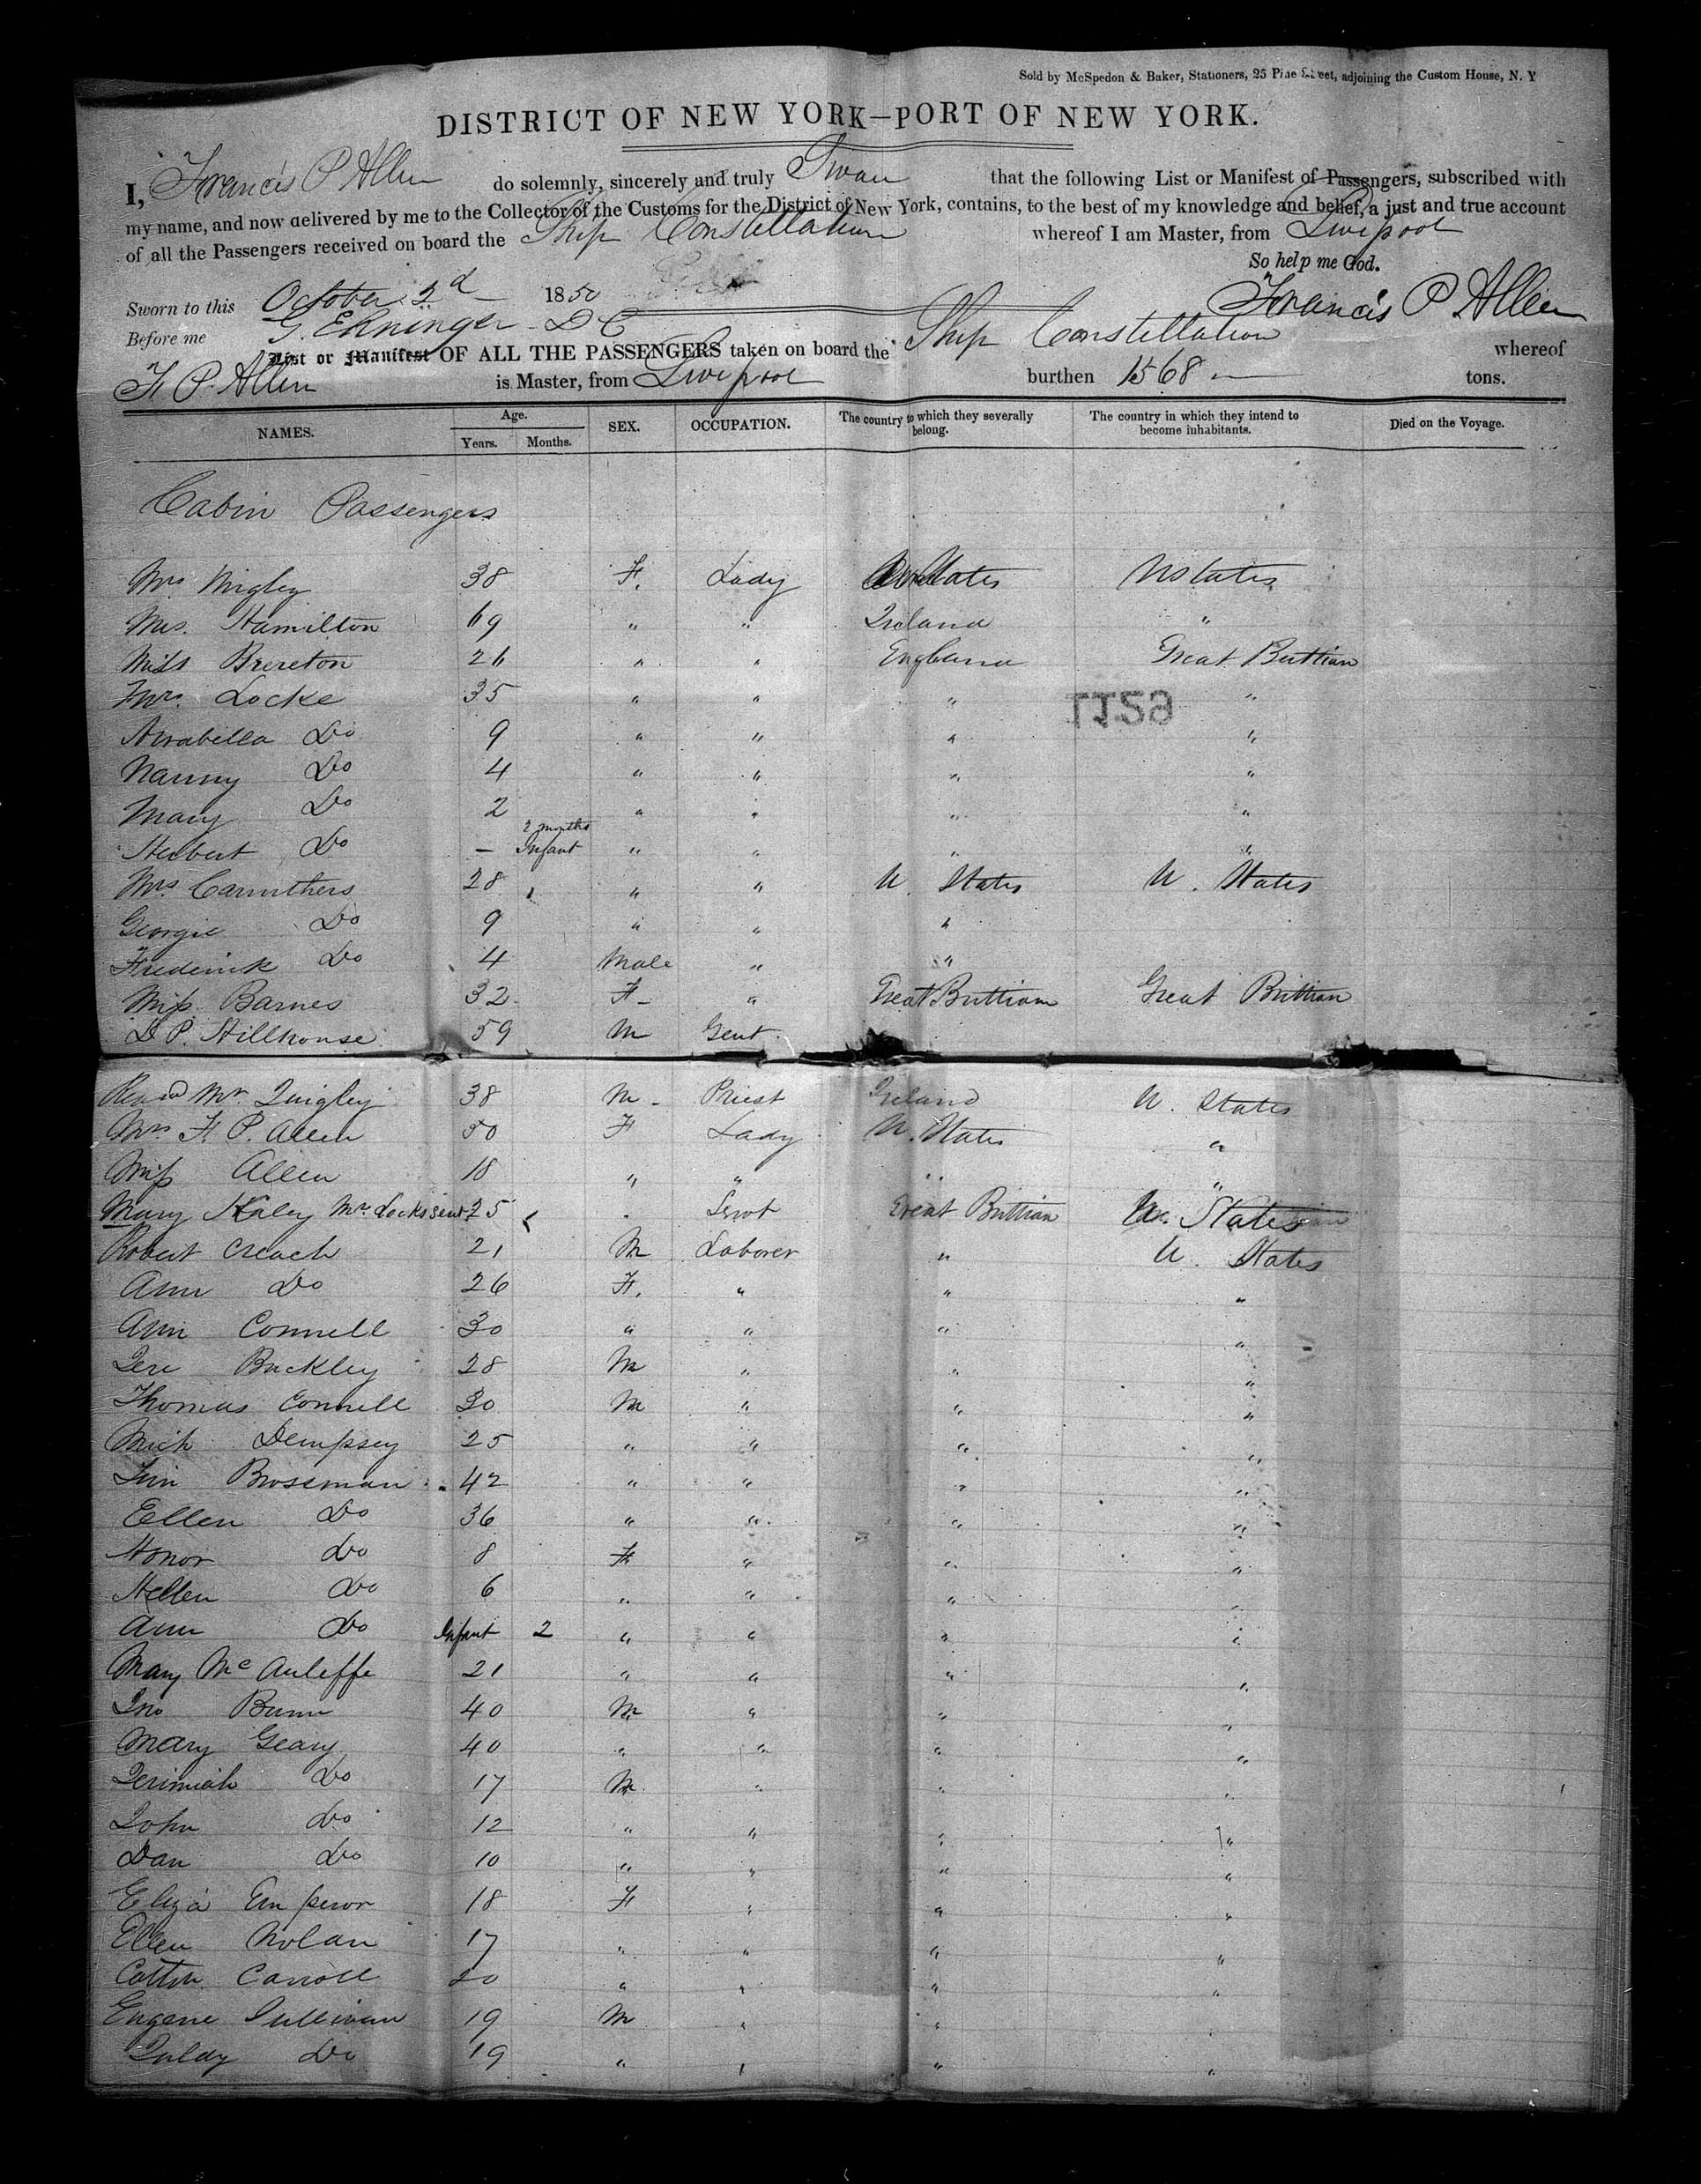 Sold by McSpedon & Baker, Stationers, 25 Pine Street, adjoining the Custom House, N. Y
DISTRICT OF NEW YORK—PORT OF NEW YORK.
I, Francis P Allen do solemnly, sincerely and truly Swear that the following List or Manifest of Passengers, subscribed with
my name, and now delivered by me to the Collector of the Customs for the District of New York, contains, to the best of my knowledge and belief, a just and true account
of all the Passengers received on board the Ship Constellation whereof I am Master, from Liverpool
So help me God.
Sworn to this October 2d 1850 Francis P Allen
Before me G. Ehninger D C
List or Manifest OF ALL THE PASSENGERS taken on board the Ship Constellation whereof
F P. Allen is Master, from Liverpool burthen 1568 tons.
NAMES. Age. Years. Months. SEX. OCCUPATION. The country to which they severally belong. The country in which they intend to become inhabitants. Died on the Voyage.
Cabin Passengers
Mrs 38 F. Lady States U States
Mrs. Hamilton 69 " " Ireland "
Miss Brereton 26 " " England Great Buttian
Mrs. Locke 35 " " " "
1129
Arabella Do 9 " " " "
Nanny Do 4 " " " "
Mary Do 2 " " " "
Herbert Do — 2 months Infant " " " "
Mrs Carruthers 28 " " U. States U. States
Georgie Do 9 " " "
Frederick Do 4 Male " "
Miss Barnes 32 F " Great Buttian Great Brittian
D P. Hillhouse 59 M Gent.
Revd Mr. Quigley 38 M Priest Ireland U. States
Mrs F. P. Allen 50 F Lady U. States "
Miss Allen 18 " " " "
Mary Kaley Mrs Locks servt 25 " Servt Great Brittian U. States
Robert Creach 21 M Laborer " U. States
Ann Do 26 F. " " "
Ann Connell 30 " " " "
Jere Buckley 28 M " " "
Thomas Connell 30 M " " "
Mich Dempsey 25 " " " "
Tim Brossman 42 " " " "
Ellen Do 36 " " " "
Honor Do 8 F " " "
Hellen Do 6 " " " "
Ann Do Infant 2 " " " "
Mary McAuleffe 21 " " " "
Jno 40 M " " "
Mary Geary 40 " " " "
Jerimiah Do 17 M " " "
John Do 12 " " " "
Dan Do 10 " " " "
Eliza Emperor 18 F " " "
Ellen Nolan 17 " " " "
Carroll 20 " " " "
Eugene Sullivan 19 M " " "
Do 19 " " " "